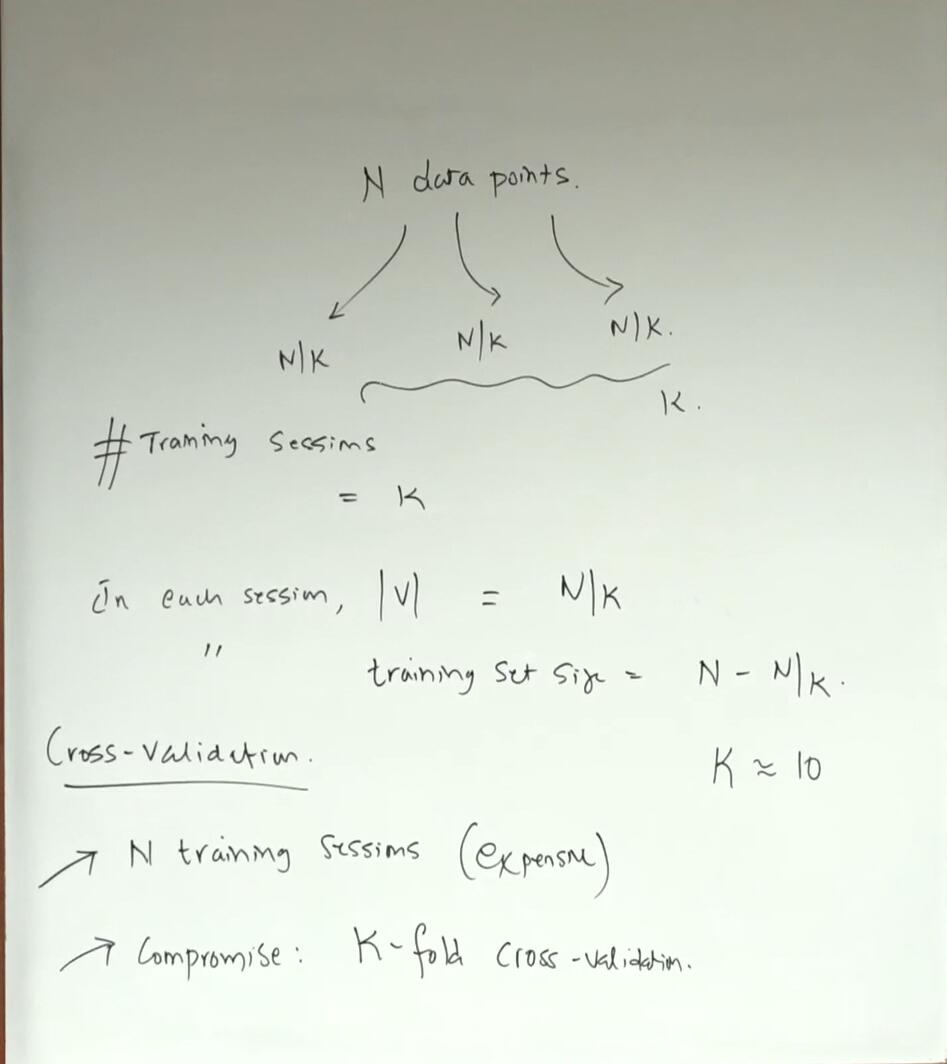 N data points.
N/K N/K N/K.
K.
# Training Sessions
= K
In each session, |V| = N/K
" training set size = N - N/K.
Cross-validation.
K ≈ 10
N training sessions (expensive)
Compromise: K-fold cross-validation.